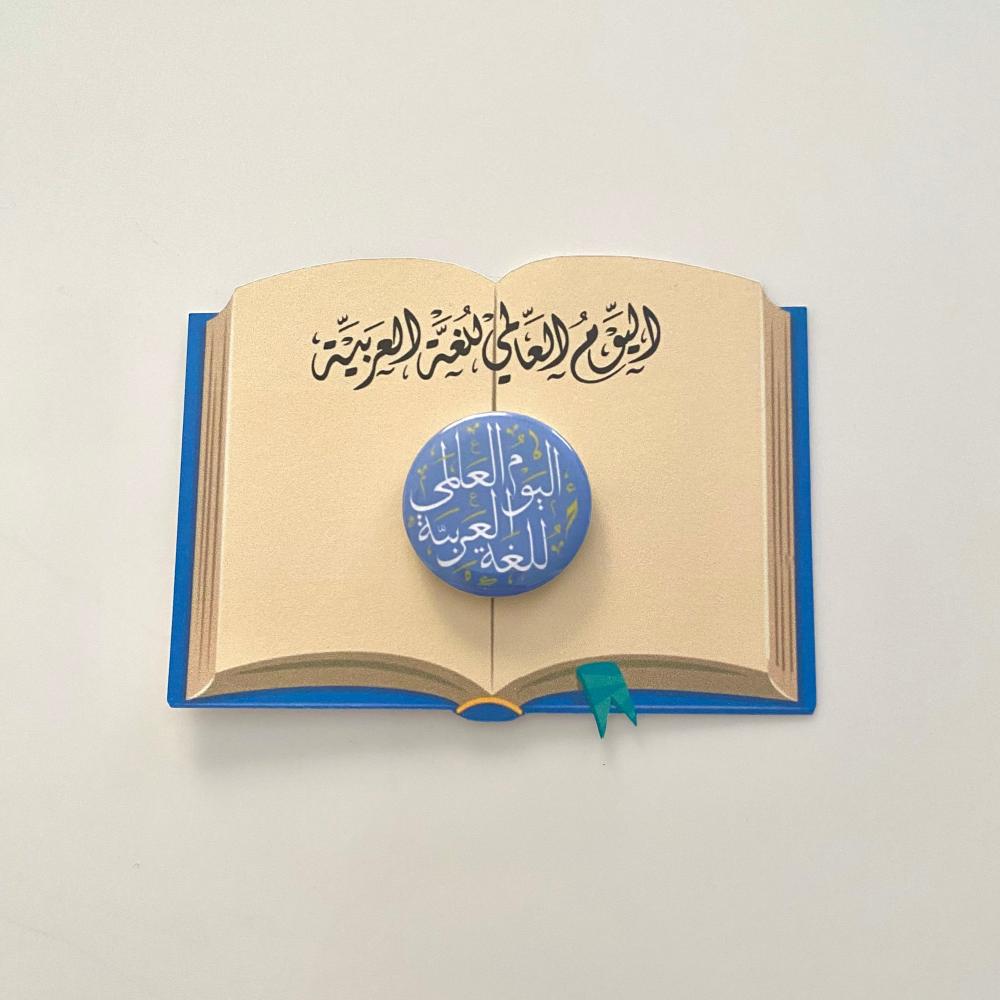 اليَوْمُ العَالَمِيُّ لِلُغَةِ العَرَبِيَّةِ
اليوم العالمي
للغة العربية